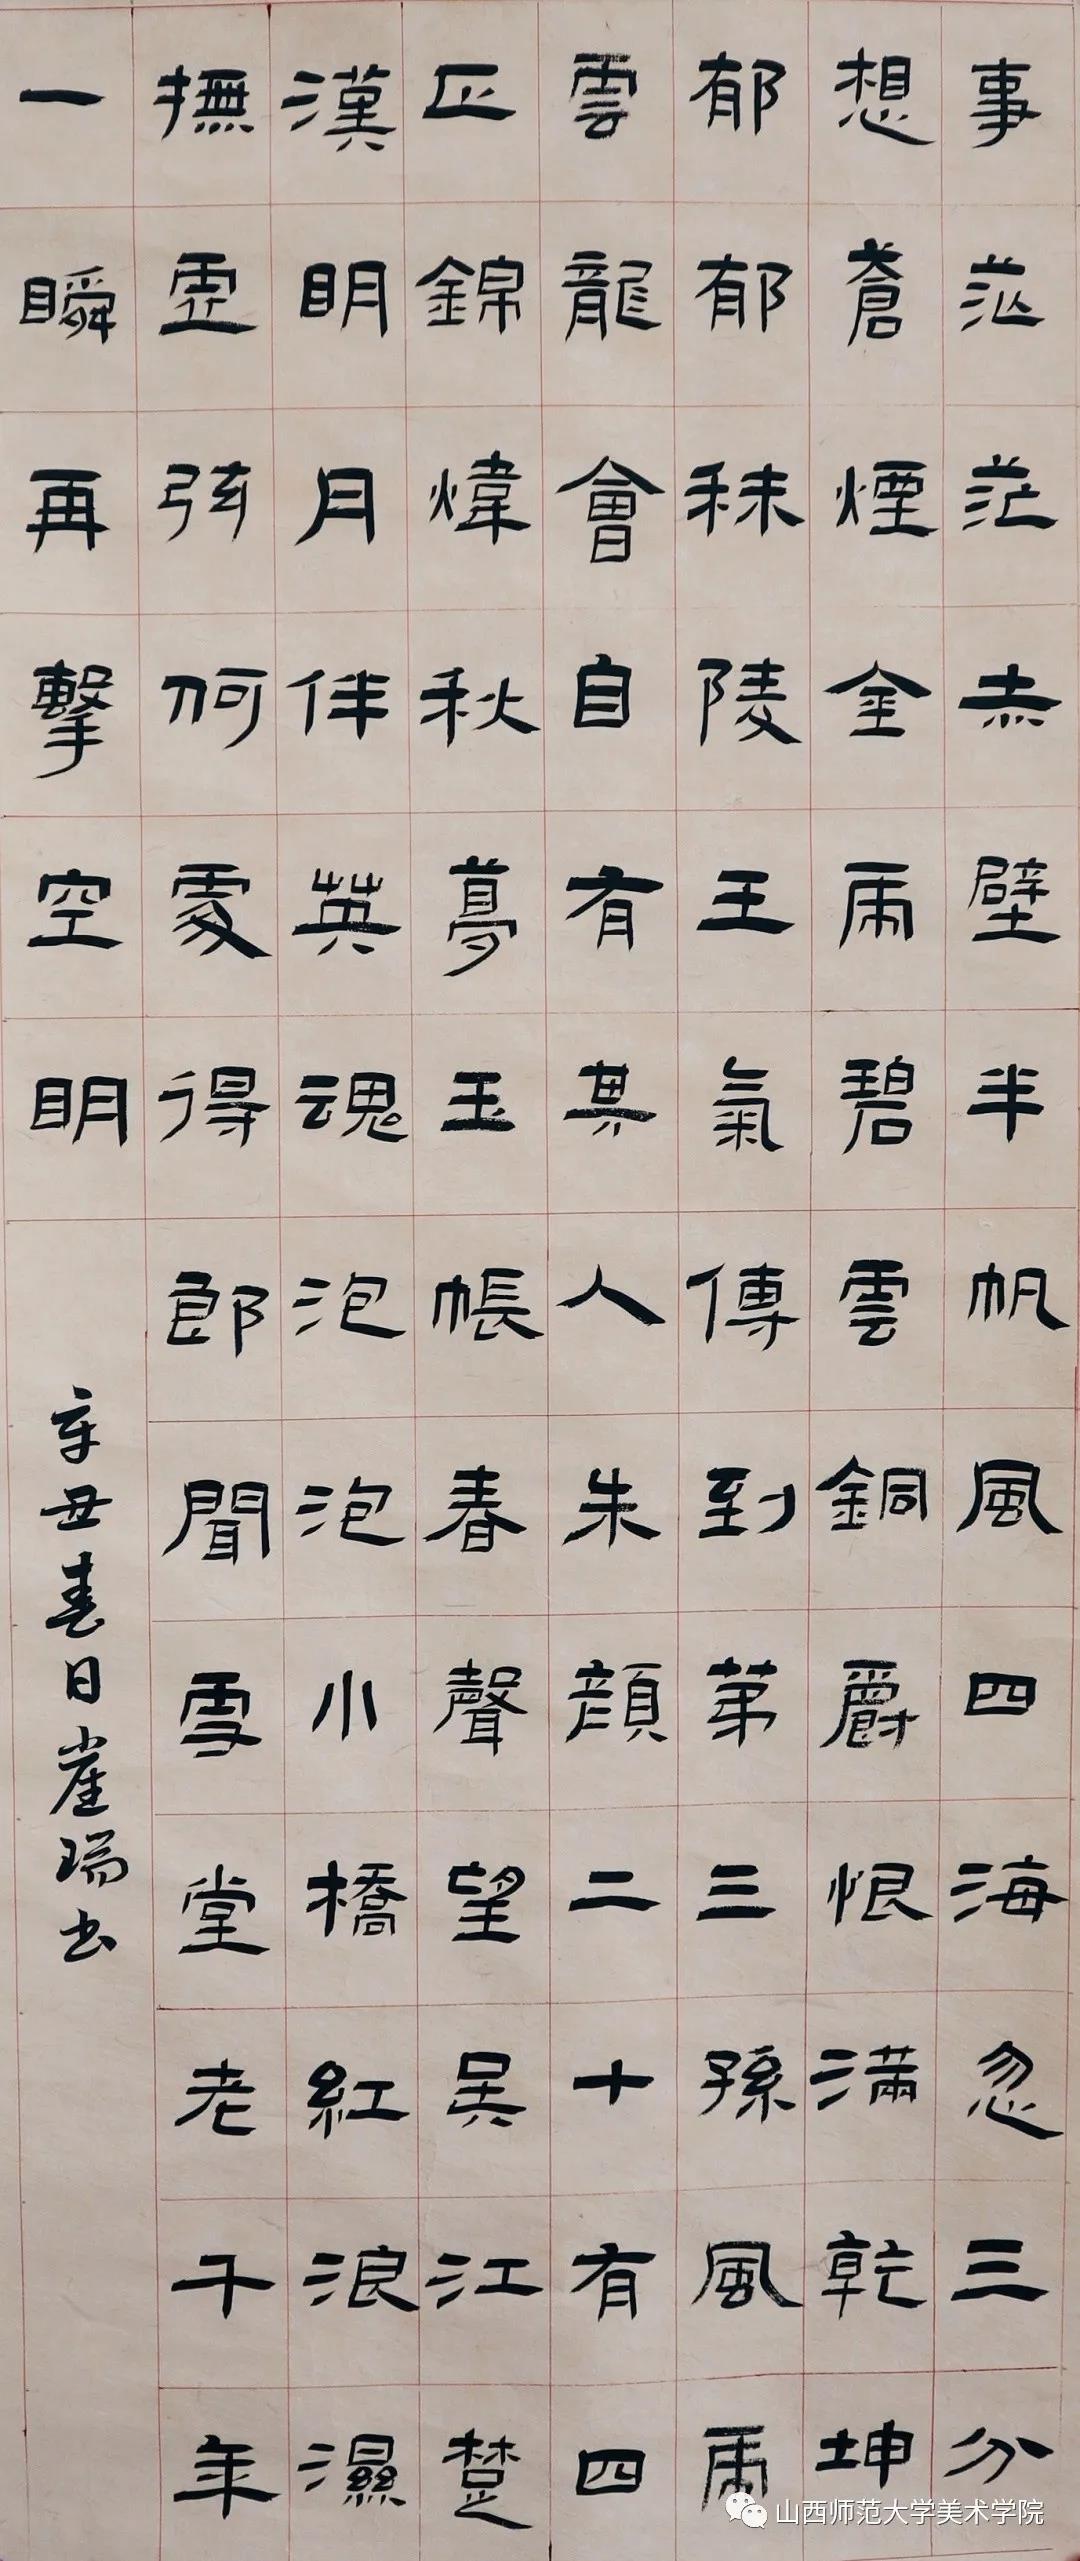 事茫茫赤壁半帆風四海忽三分
想蒼煙金虎碧雲銅爵恨滿乾坤
郁郁秣陵王氣傳到第三孫風虎
雲龍會自有其人朱顏二十有四
正錦煒秋夢玉帳春聲望吳江楚
漢明月伴英魂浥浥小橋紅浪濕
撫虛弦何處得郎聞雪堂老千年
一瞬再擊空明
辛丑春日崔瑞书
山西师范大学美术学院